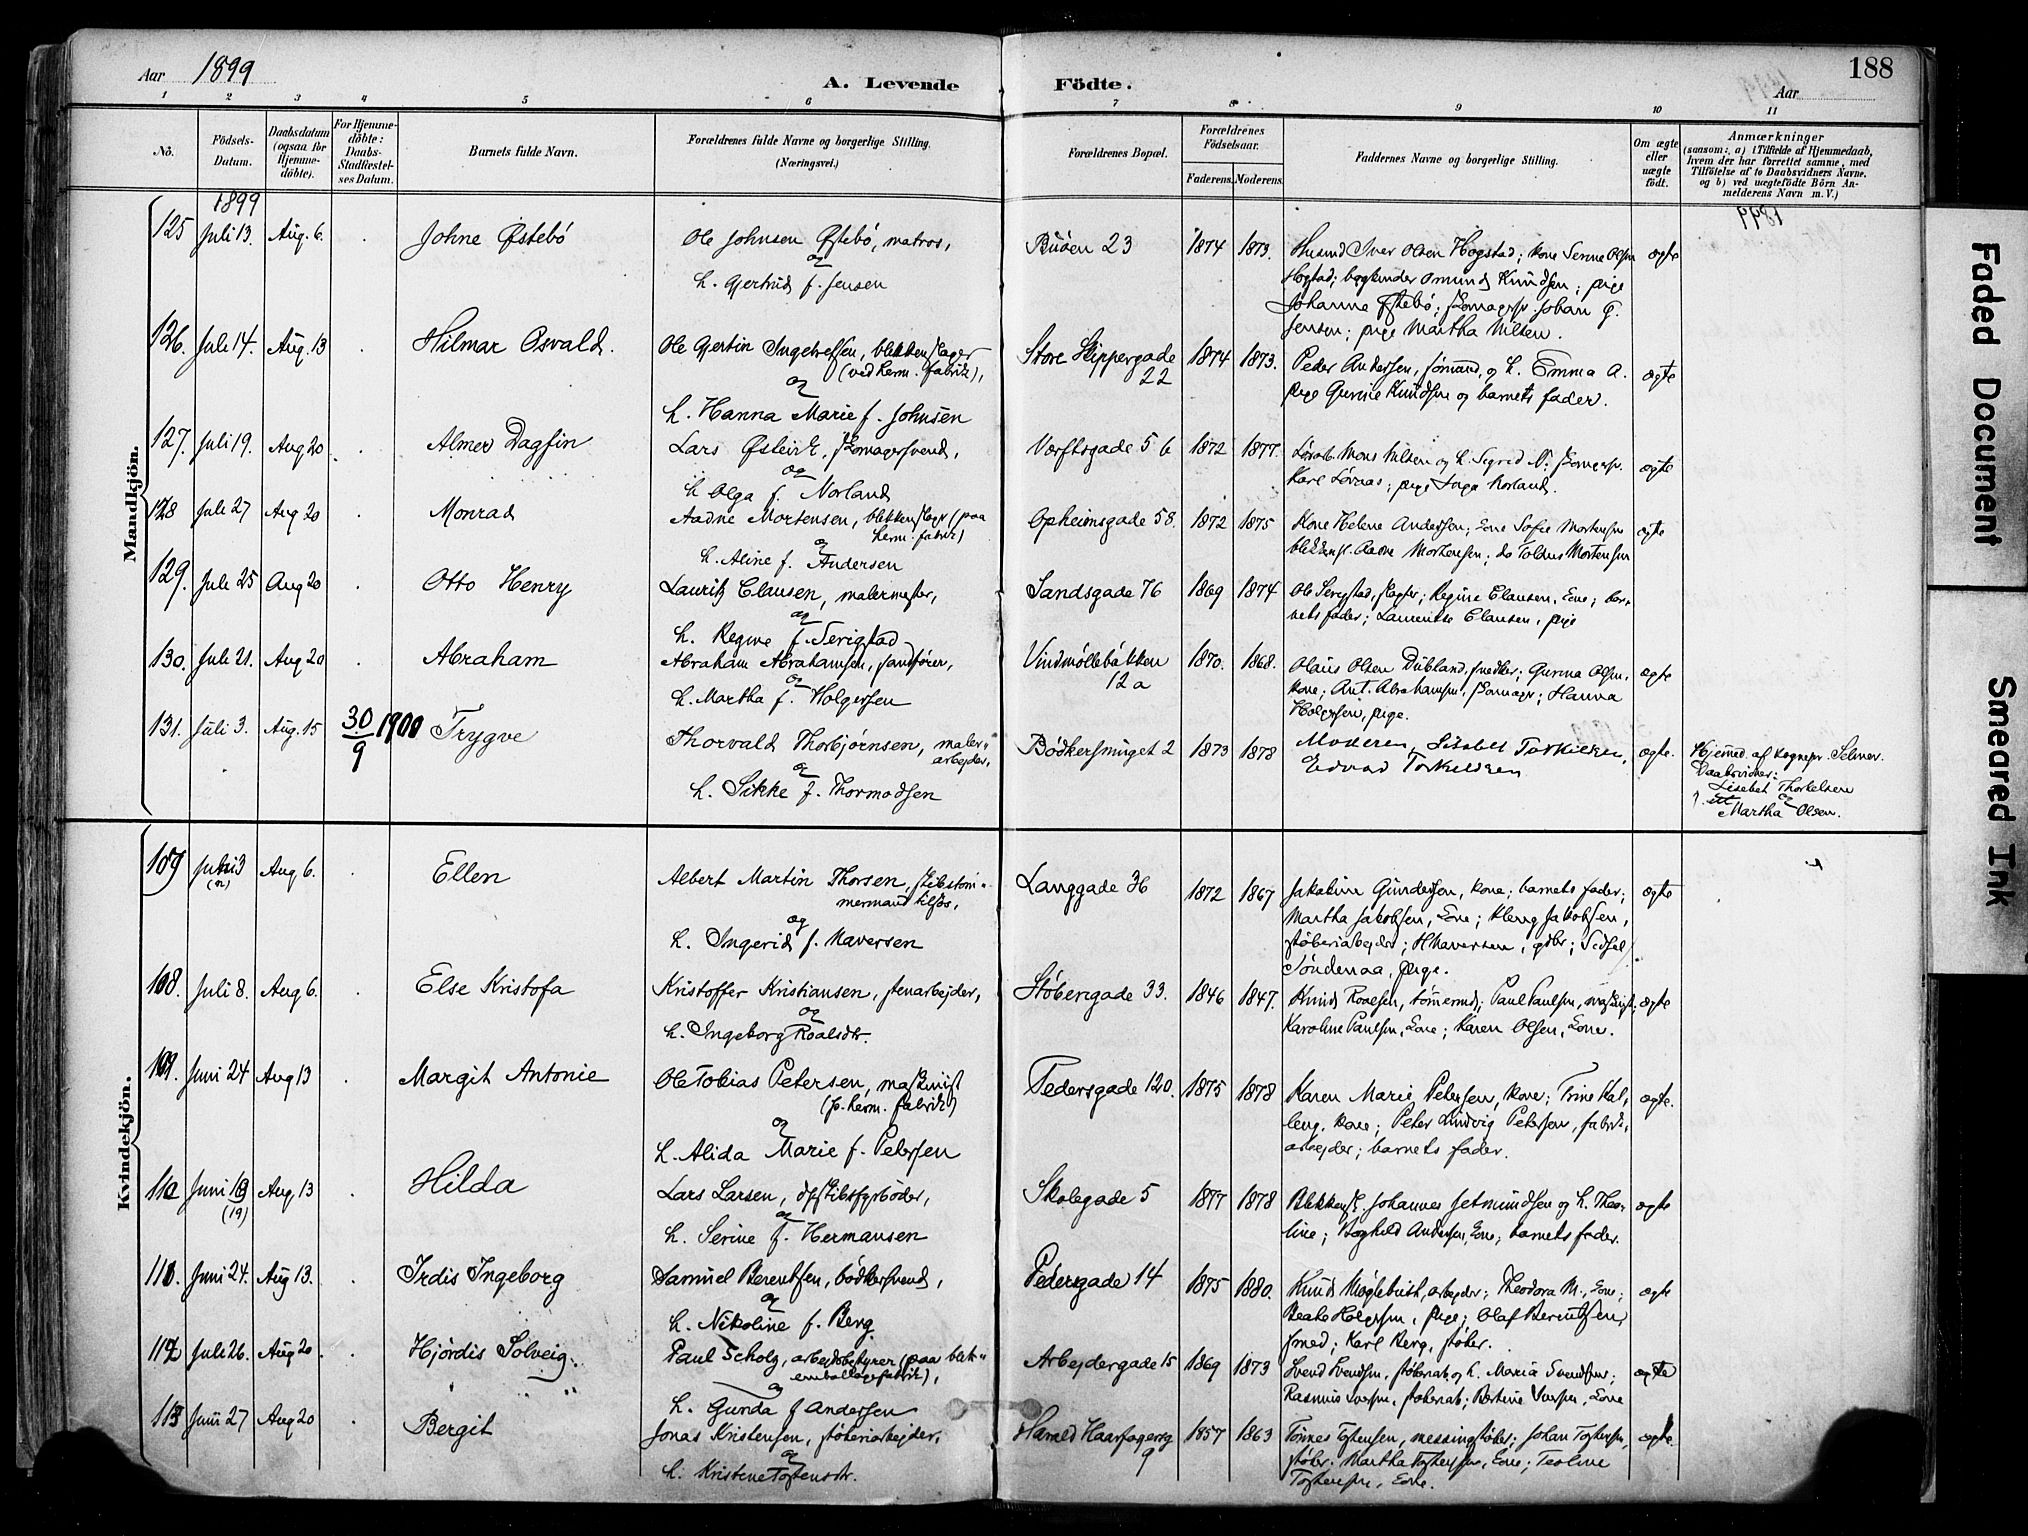 Aar 1899
A. Levende Födte.
188
Aar
1 2 3 4 5 6 7 8 9 10 11
Nô.
Födsels-Datum.
Daabsdatum (ogsaa for Hjemme-döbte).
For Hjemme-döbte: Daabs-Stadfæstel-ses Datum.
Barnets fulde Navn.
Forældrenes fulde Navne og borgerlige Stilling. (Næringsvei.)
Forældrenes Bopæl.
Forældrenes Födselsaar.
Faderens. Moderens.
Faddernes Navne og borgerlige Stilling.
Om ægte eller uægte födt.
Anmærkninger
(sansom: a) i Tilfælde af Hjemmedaab, hvem der har forrettet samme, med Tilföielse af to Daabsvidners Navne. og b) ved uægtefödte Börn An-melderens Navn m. V.)
Mandkjön.
1899
125 Juli 13. Aug. 6. Johne Østebö
Ole Johnsen Østebö, matros,
og
h. Gjertrud f. Jensen
Buöen 23 1874 1873.
Husmd Iver Olsen Hogstad; kone Serine Olsen
Hogstad; bogbinder Omund Knudsen; pige
Johanne Østebö; skomagersv. Johan G.
Jensen; pige Martha Nilsen.
ægte
126. Juli 14. Aug. 13 Hilmar Osvald.
Ole Gjertin Ingebretsen, blikkenslager
(ved herm. fabrik),
og
h. Hanna Marie f. Johnsen
Store Skippergade
22
1874 1873.
Peder Andersen, sømand, og h. Emma A.
pige Gurine Knudsen og barnets fader.
ægte
127. Juli 19. Aug 20 Almer Dagfin
Lars Østvik, skomagersvend,
og
h Olga f. Norland
Verftsgade 5 b 1872 1877.
Mons Nilsen og h. Sigrid N; skomagersv.
Karl ; pige Inga Norland.
ægte
128 Juli 27 Aug 20 Monrad
Aadne Mortensen, blikkenslager (paa
herm. fabrik)
og
h. Aline f. Andersen
Opheimsgade 58. 1872 1875
Kone Helene Andersen; kone Sofie Mortensen
blikkensl. Aadne Mortensen; do Tobias Mortensen
ægte
129. Juli 25 Aug 20 Otto Henry
Lauritz Clausen, malermester,
og
h. Regine f. Serigstad
Sandsgade 76 1869 1874
Ole Serigstad, slagter; Regine Clausen, kone; bar-
nets fader; Lauritse Clausen, pige
ægte
130. Juli 21. Aug 20 Abraham
Abraham Abrahamsen, sandfører,
og
h. Martha f. Holgersen
Vindmöllebakken
12 a
1870. 1868.
Olaus Olsen Dubland, snedker; Gurina Olsen,
kone; Ant. Abrahamsen, skomager; Hanna
Holgersen, pige.
ægte
131. Juli 3. Aug. 15 30/9 1900 Trygve
Thorvald Thorbjørnsen, maler-
arbejder,
og
h. Sikke f. Thormodsen
Bödkersmuget 2 1873 1878
Moderen, Lisabet Torkildsen,
Edvard Torkildsen
ægte.
Hjemmed. af sognepr. Selmer.
Daabsvidner:
Lisebet Thorkelsen
og
Martha Olsen.
Kvindekjön.
107 Juni 3 Aug 6. Ellen
Albert Martin Thorsen, skibstöm-
mermand tilsös,
og
h. Ingerid f. Haversen
Langgade 36 1872 1867
Jakobine Gundersen, kone; barnets fader;
Martha Jakobsen, kone; Jakobsen,
støberiarbejder; H Haversen, gdbr; Sidsel
Söndenaa, pige.
ægte
108. Juli 8. Aug 6. Else Kristofa
Kristoffer Kristiansen, stenarbejder,
og
h. Ingeborg Roalsdtr.
Støberigade 33. 1846 1847.
Knud Roalsen, tømmermd; Paul Paulsen, maskinist;
Karoline Paulsen, kone; Karen Olsen, kone.
ægte
109. Juni 24 Aug 13 Margit Antonie
Ole Tobias Petersen, maskinist
(p. herm. fabrik)
og
h. Alida Marie f. Petersen
Pedersgade 120. 1875 1878
Karen Marie Petersen, kone; Trine Kal-
leng, kone; Peter Ludvig Petersen, fabrik-
arbejder; barnets fader.
ægte.
110 Juni 18 (19) Aug 13 Hilda
Lars Larsen, dpskibsfyrböder,
og
h. Serine f. Hermansen
Skolegade 5 1877 1878
Blikkensl. Johannes Jetmundsen og h. Theo-
line; Boghild Andersen, kone; barnets fader.
ægte
111. Juni 24. Aug 13. Irdis Ingeborg
Samuel Berentsen, bödkersvend,
og
h. Nikoline f. Berg
Pedersgade 14 1875 1880.
Knud Møglebust, arbejder; Theodora M., kone;
Beate Holgersen, pige; Olaf Berentsen,
smed; Karl Berg, støber.
ægte
112 Juli 26. Aug 20 Hjördis Solveig.
Paul Scholz, arbejdsbestyrer (paa blik-
emballagefabrik),
og
h. Gunda f Andersen
Arbejdergade 15 1869 1873
Svend Svendsen, støberiarb. og h. Maria Svendsen;
Rasmus Iversen, støberiarb; Bertine Iversen, kone
ægte
113 Juni 27 Aug 20 Bergit
Jonas Kristensen, støberiarbejder,
og
h. Kristene Tostensdtr.
Harald Haarfagersg
9
1857 1863
Tønnes Tostensen, messingstøber; Johan Tostensen,
støber. Martha Tostensen, kone; Teoline
Tostensen, kone.
ægte.
Faded Document
Smeared Ink